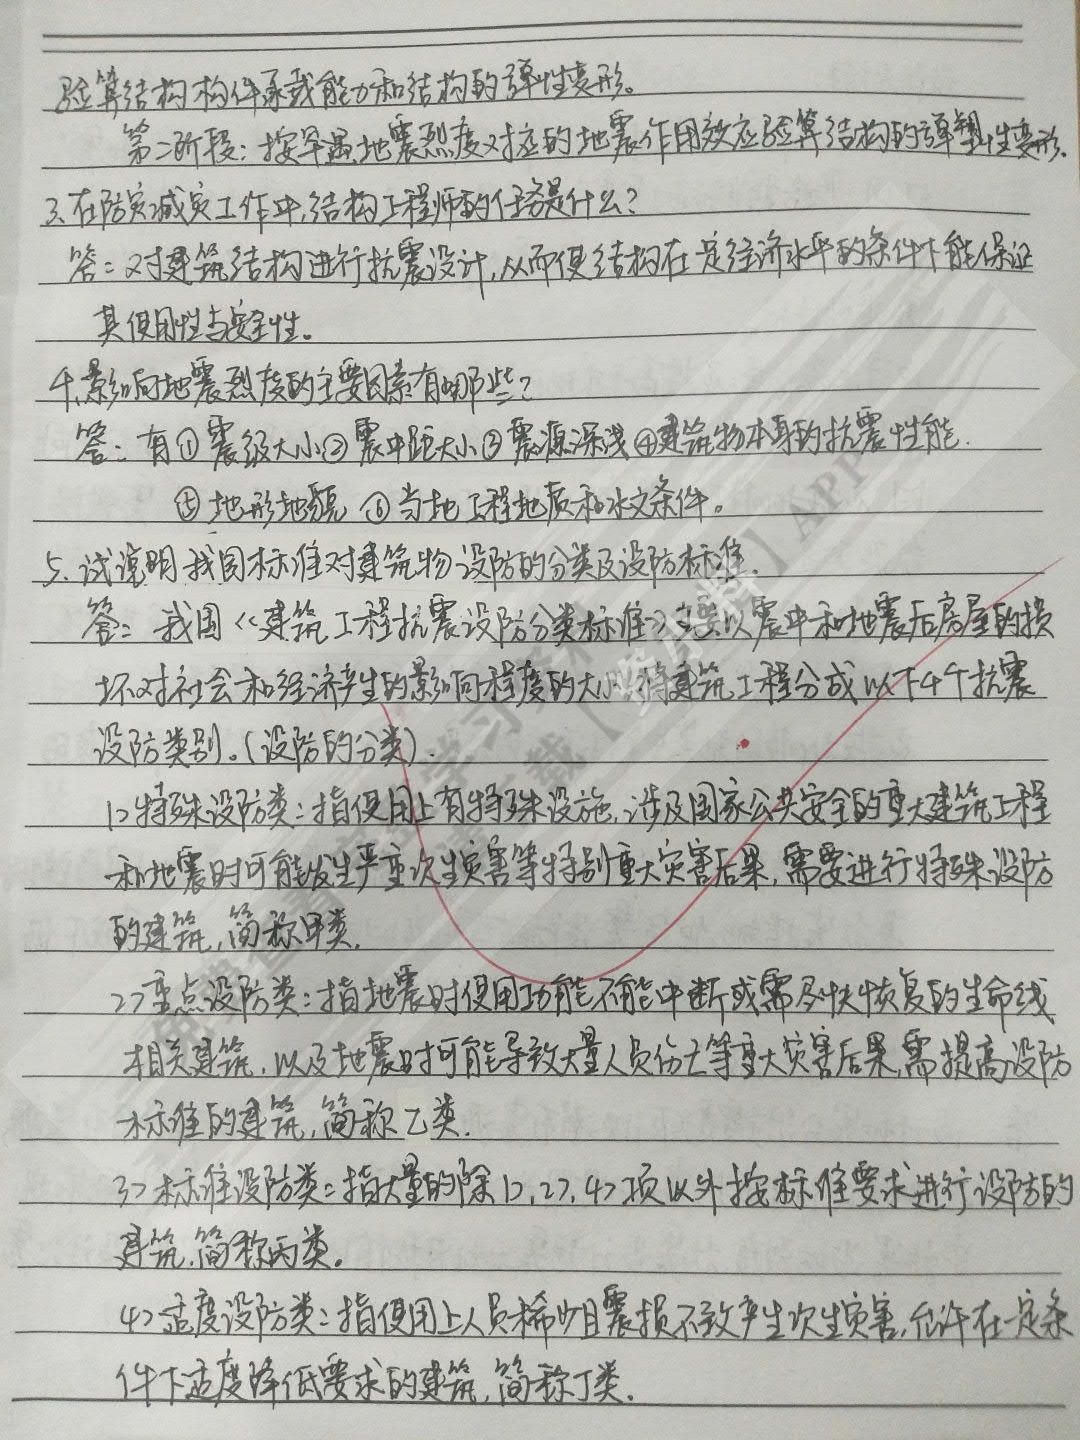 验算结构构件承载能力和结构的弹性变形。
第二阶段:按罕遇地震烈度对应的地震作用效应验算结构的弹塑性变形.
3、在防灾减灾工作中,结构工程师的任务是什么?
答:对建筑结构进行抗震设计,从而使结构在一定经济水平的条件下能保证
其使用性与安全性。
4、影响地震烈度的主要因素有哪些?
答:有①震级大小②震中距大小③震源深浅④建筑物本身的抗震性能.
⑤地形地貌 ⑥当地工程地质和水文条件。
5、试说明我国标准对建筑物设防的分类及设防标准.
答:我国《建筑工程抗震设防分类标准》主要以震中和地震后房屋的损
坏对社会和经济产生的影响程度的大小,将建筑工程分成以下4个抗震
设防类别。(设防的分类).
1>特殊设防类:指使用上有特殊设施,涉及国家公共安全的重大建筑工程
和地震时可能发生严重次生灾害等特别重大灾害后果,需要进行特殊设防
的建筑,简称甲类.
2>重点设防类:指地震时使用功能不能中断或需尽快恢复的生命线
相关建筑,以及地震时可能导致大量人员伤亡等重大灾害后果,需提高设防
标准的建筑,简称乙类.
3>标准设防类:指大量的除1>,2>,4>项以外按标准要求进行设防的
建筑,简称丙类。
4>适度设防类:指使用上人员稀少且震损不致产生次生灾害,允许在一定条
件下适度降低要求的建筑,简称丁类.